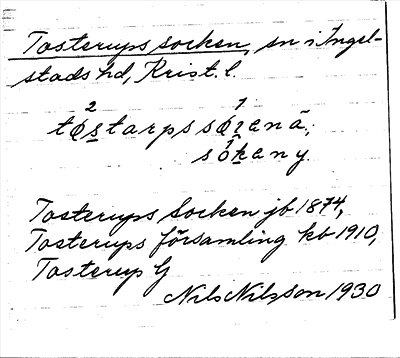 Tosterups socken, sn i Ingel-
stads hd, Krist. l.
2 1
tøstarps søʒenä;
1
sökeny.
Tosterups Socken jb 1874,
Tosterups församling kb 1910,
Tosterup G
Nils Nilsson 1930